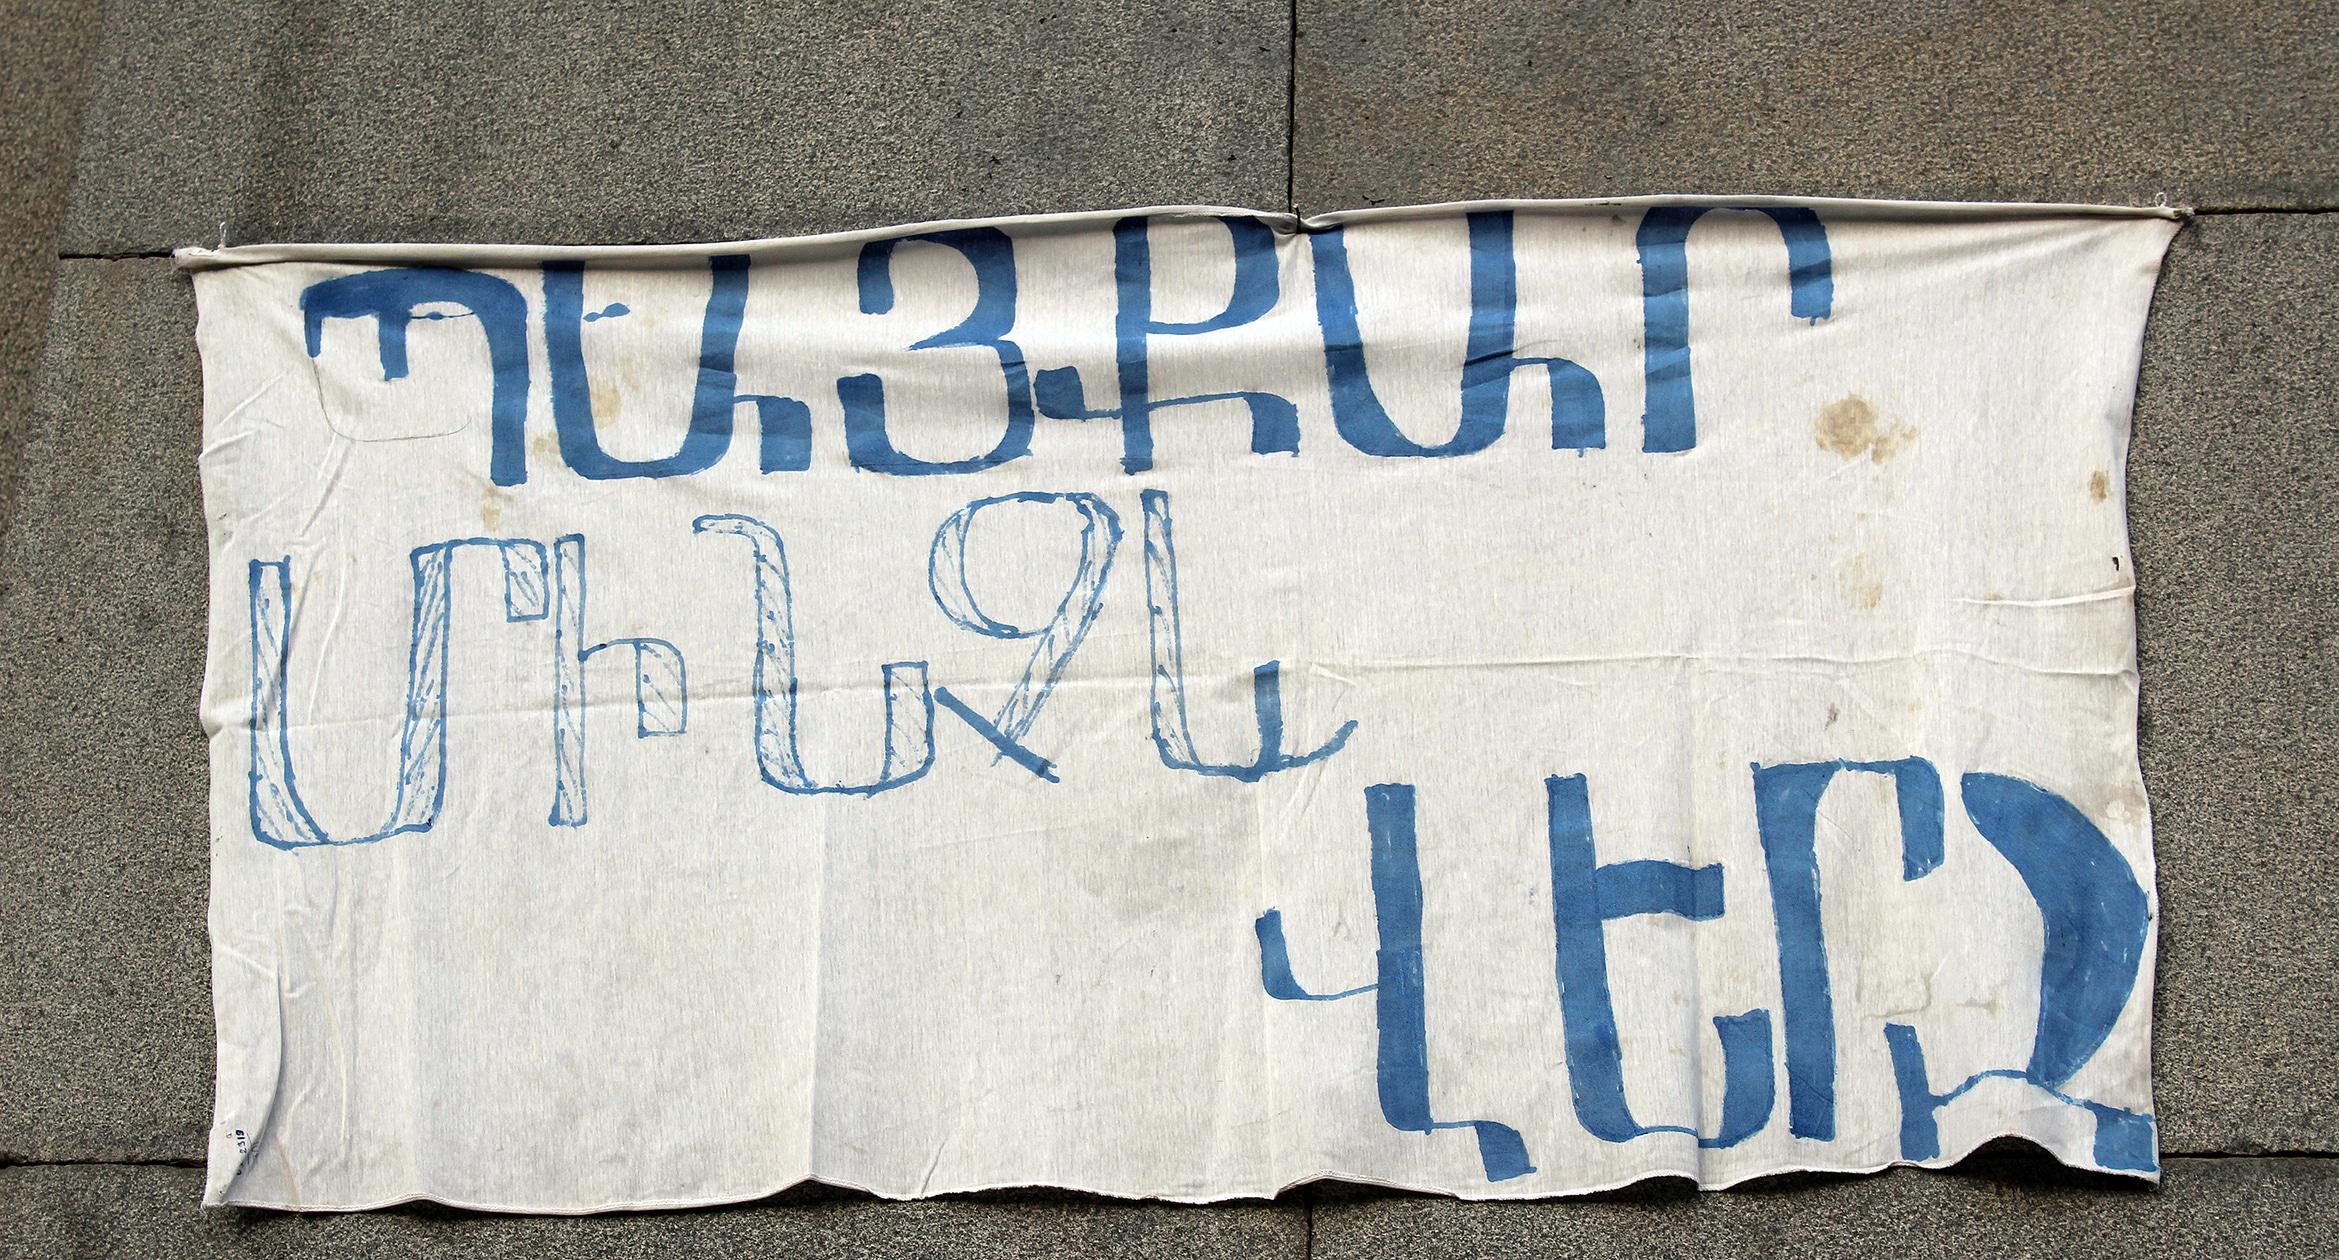 ՊԱՅՔԱՐ
ՄԻՆՉև
ՎԵՐՋ